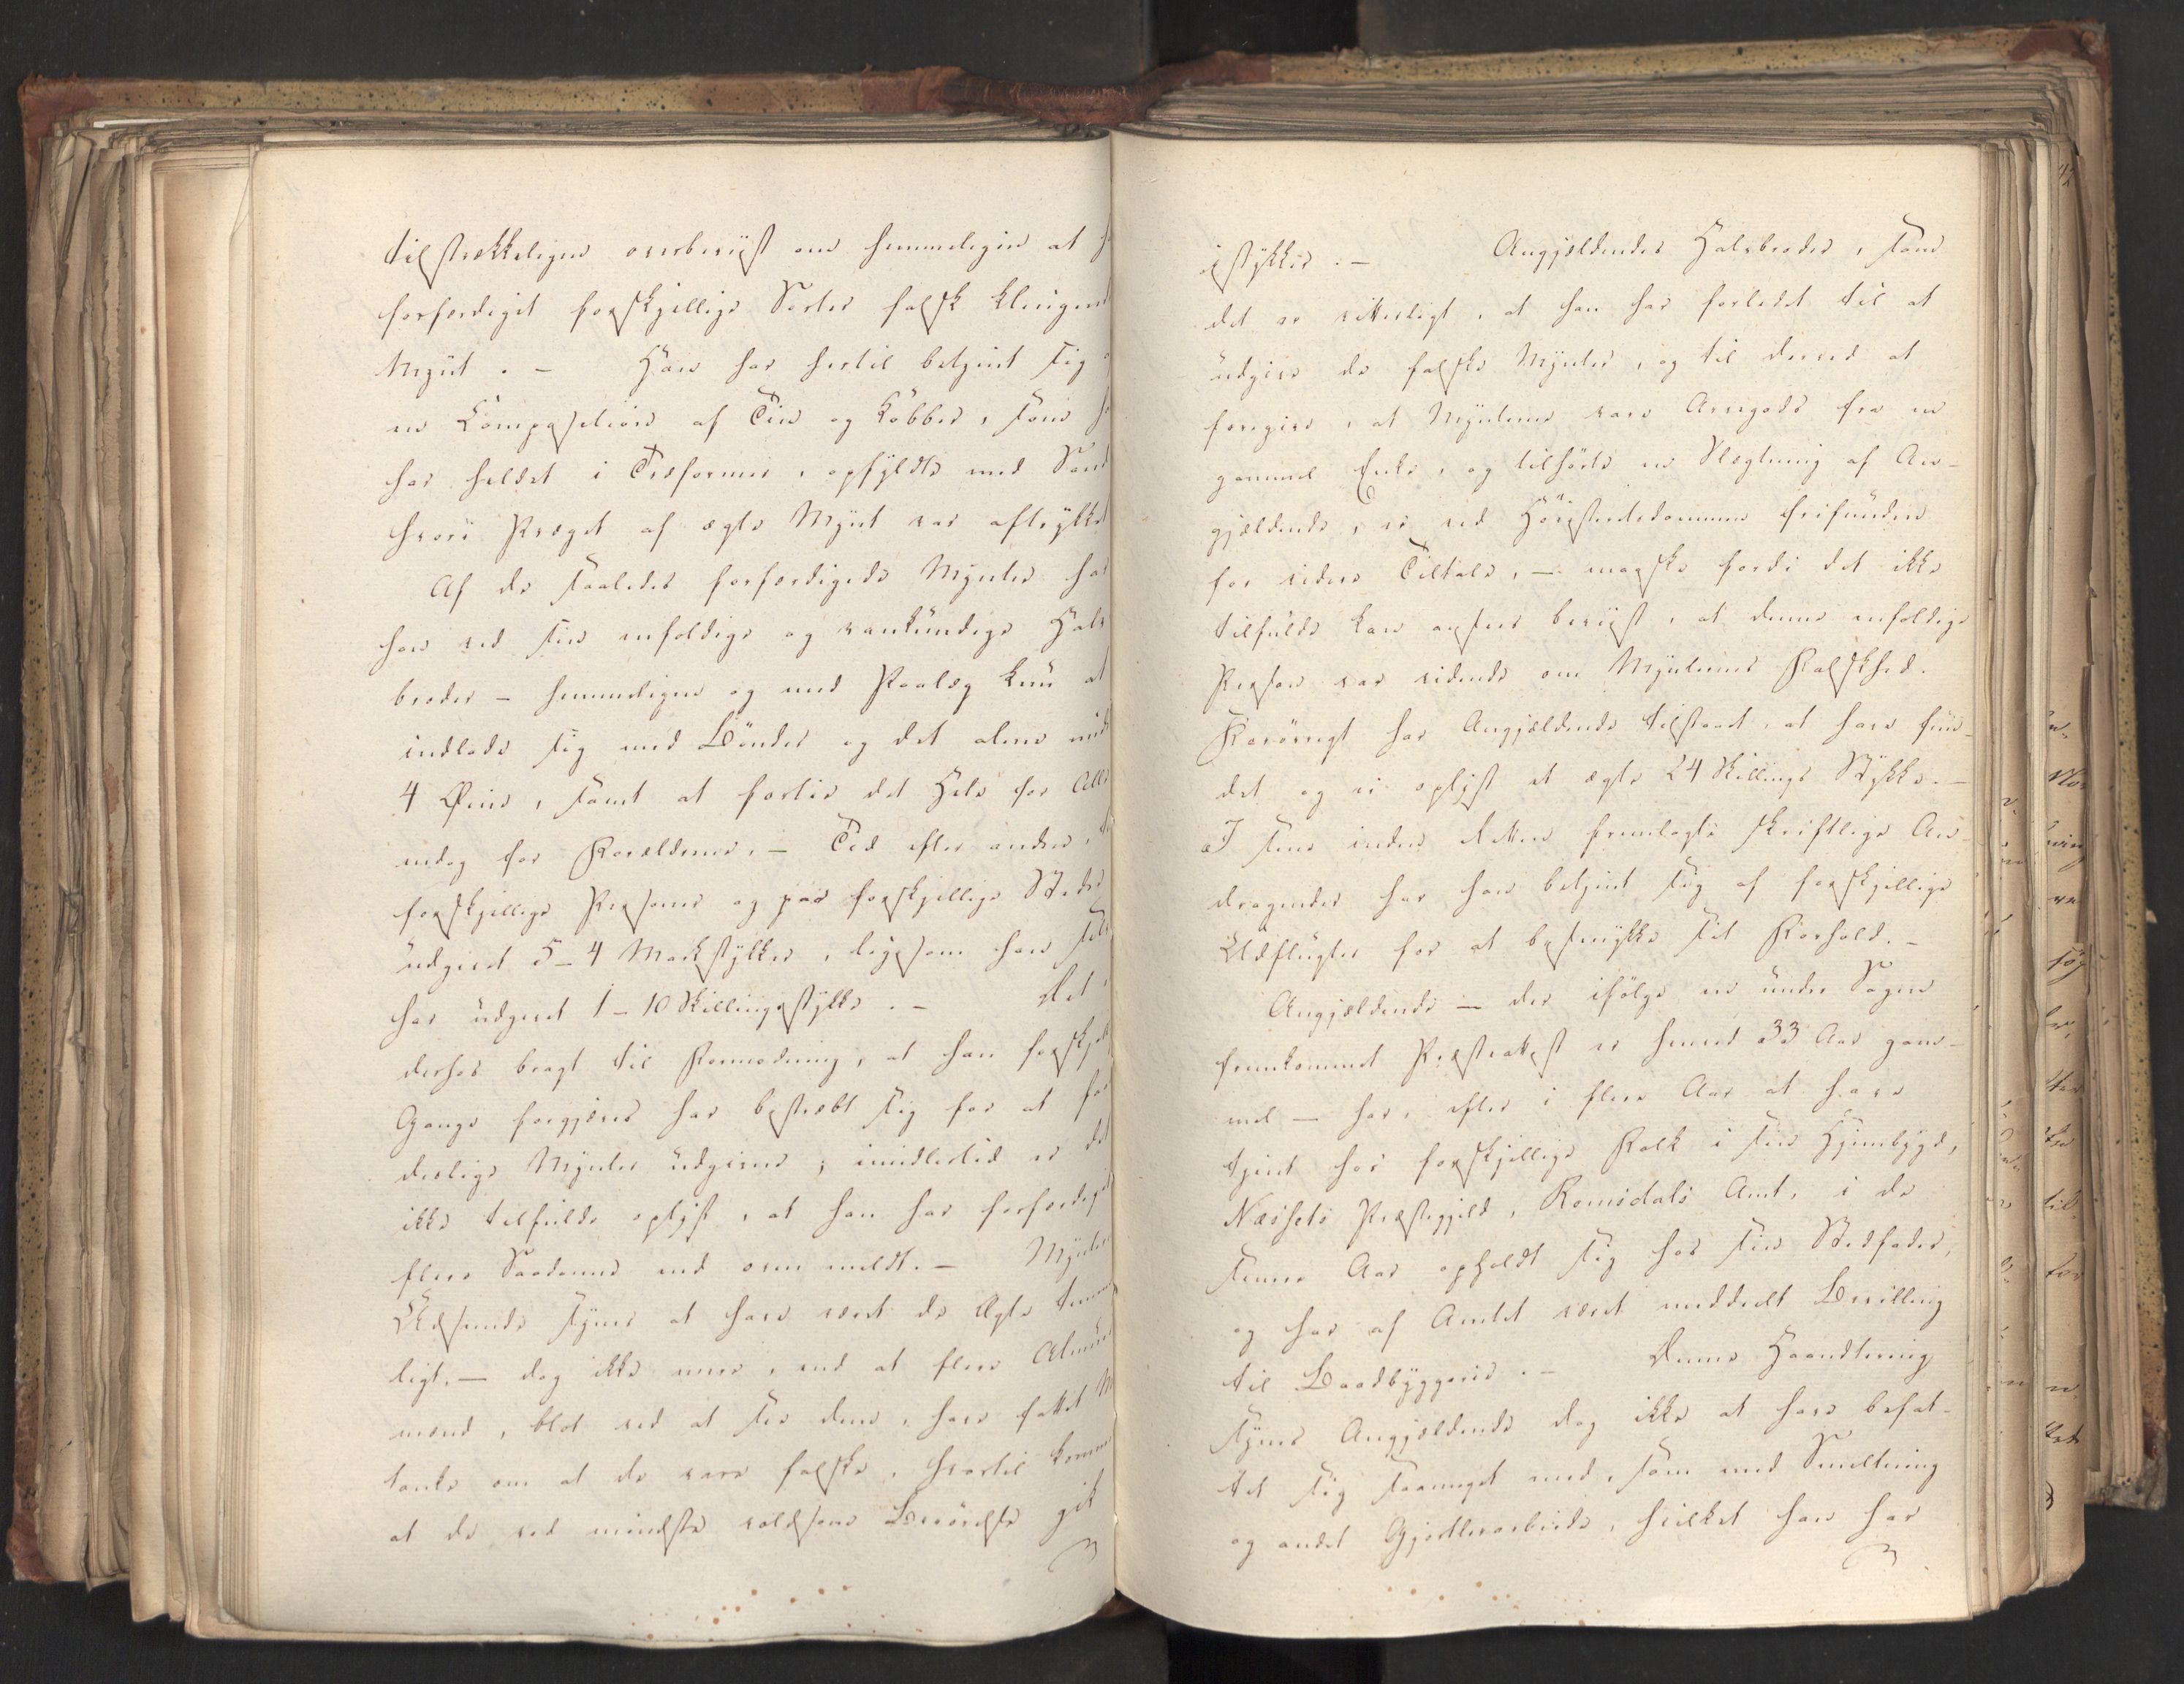 tilstrækkeligen overbeviist om hemmeligen at
forfærdiget forskjellige Sorter falsk klingend
Mynt. – Han har hertil betjent sig
en Composition af Tin og Kobber, som
har heldet i Træformer, opfyldte med Sand
hvori Præget af ægte Mynt var aftrykket
Af de saaledes forfærdigede Mynter har
han ved sin enfoldige og vankundige Halv
broder – hemmeligen og med Paalæg kun at
indlade sig med Bönder og det alene under
4 Øine, samt at fortie det Hele for Alle
endog for Forældrene, – Tid efter anden,
forskjellige Personer og paa forskjellige Steder
udgivet 5–4 Markstykker, ligesom han selv
har udgivet 1–10 Skillingsstykke. – Det
derhos bragt til Formodning, at han forskjell
Gange forgjæves har bestræbt sig for at faa
deslige Mynter udgivne; imidlertid er det
ikke tilfulde oplyst, at han har forfærdiget
flere Saadanne end oven meldt. – Mynter
Udseende synes at have været de Ægte temme
ligt. – dog ikke mere, end at flere Almues
mænd, blot ved at see dem, have fattet M
tanke om at de vare falske, hvortil kommer
at de ved mindste voldsomme Berörelse gik
istykker. – Angjældendes Halvbroder, som
det er vitterligt, at han har forledet til at
udgive de falske Mynter, og til derved at
foregive, at Mynterne vare Arvegods fra en
gammel Enke, og tilhörte en Slægtning af An-
gjældende, er ved Höiesteretsdommen frifunden
for videre Tiltale, – maaske fordi det ikke
tilfulde kan ansees beviist, at denne enfoldige
Person var vidende om Mynternes Falskhed.
Forövrigt har Angjældende tilstaaet, at have fun-
det og ei oplyst et ægte 24 Skillings Stykke. –
I sine inden Retten fremlagte skriftlige An-
dragender har han betjent sig af forskjellige
Udflugter for at besmykke sit Forhold. –
Angjældende – der ifölge en under Sagen
fremkommet Præsteattest er henved 33 Aar gam-
mel – har, efter i flere Aar at have
tjent hos forskjellige Folk i sin Hjembygd,
Næssets Præstegjeld, Romsdals Amt, i de
senere Aar opholdt sig hos sin Stedfader,
og har af Amtet været meddeelt Bevilling
til Baadbyggerie. – Denne Haandtering
synes Angjældende dog ikke at have befat-
tet sig saameget med, som med Smeltning
og andet Gjørtlerarbeide, hvilket han har